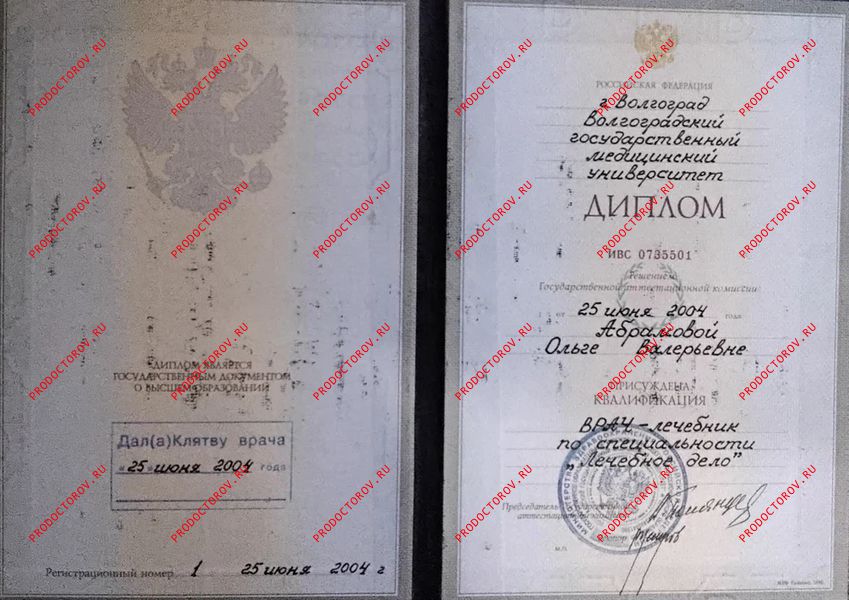 ДИПЛОМ ЯВЛЯЕТСЯ
ГОСУДАРСТВЕННЫМ ДОКУМЕНТОМ
О ВЫСШЕМ ОБРАЗОВАНИИ
Дал(а) Клятву врача
«25» июня 2004 года
Регистрационный номер 1 25 июня 2004 г
РОССИЙСКАЯ ФЕДЕРАЦИЯ
г. Волгоград
Волгоградский
государственный
медицинский
университет
ДИПЛОМ
ИВС 0735501
Решением
Государственной аттестационной комиссии
от 25 июня 2004 года
Абрамовой
Ольге Валерьевне
ПРИСУЖДЕНА
КВАЛИФИКАЦИЯ
ВРАЧ-лечебник
по специальности
„Лечебное дело"
Председатель Государственной
аттестационной
М.П.
PRODOCTOROV.RU